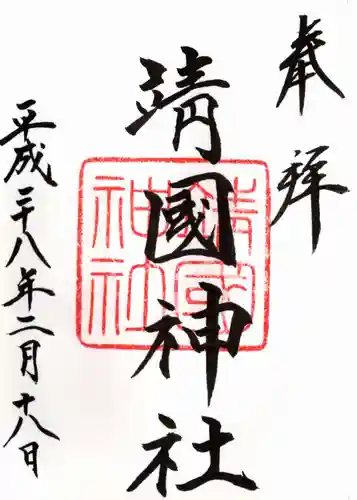 奉拝
靖國神社
靖國
神社
平成二十八年二月十八日